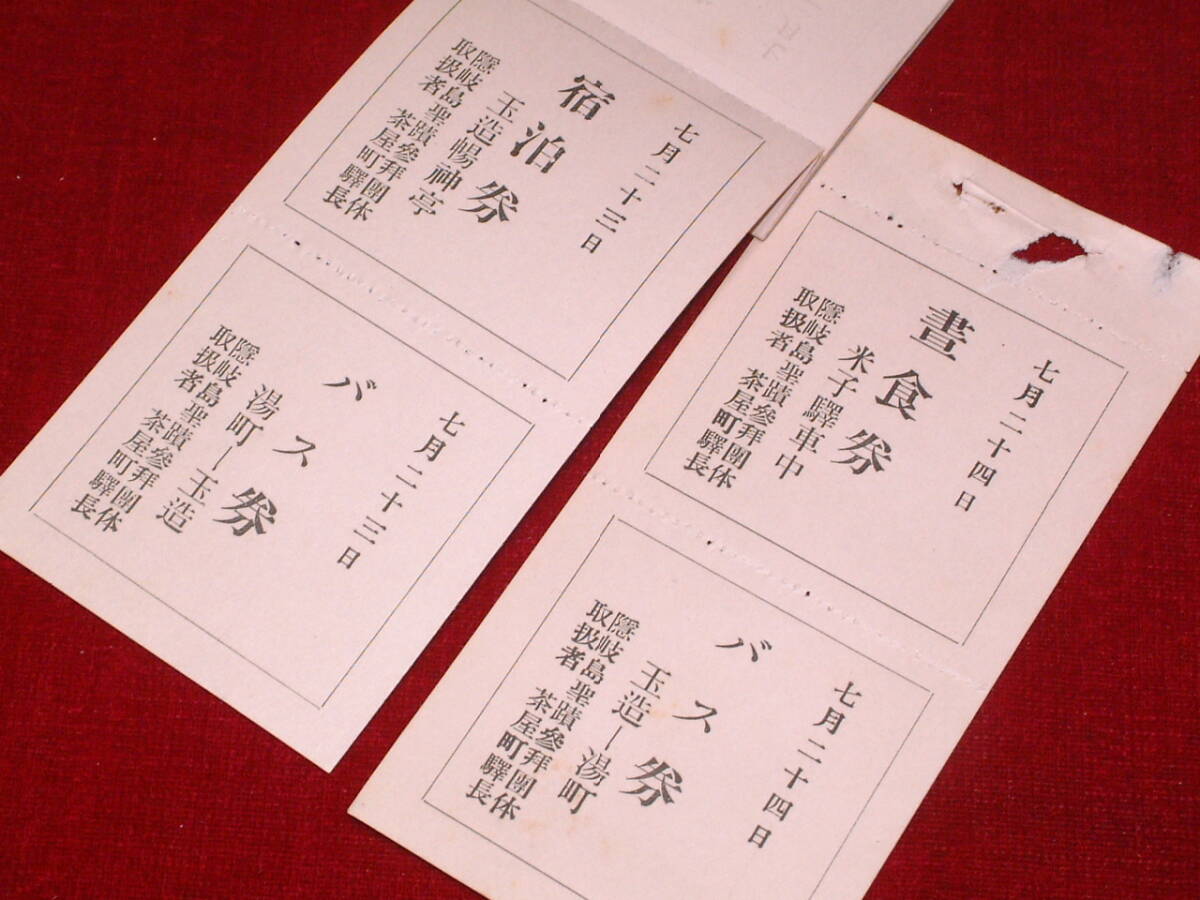 七月二十三日
宿泊券
玉造暢神亭
隱岐島聖蹟參拜團体
取扱者 茶屋町驛長
七月二十三日
バス券
湯町ー玉造
隱岐島聖蹟參拜團体
取扱者 茶屋町驛長
七月二十四日
晝食券
米子驛車中
隱岐島聖蹟參拜團体
取扱者 茶屋町驛長
七月二十四日
バス券
玉造ー湯町
隱岐島聖蹟參拜團体
取扱者 茶屋町驛長